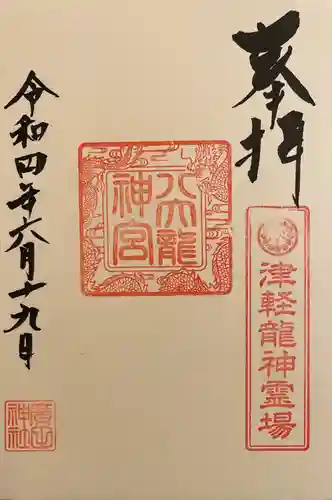 奉拝
津軽龍神霊場
八大龍
神宮
令和四年六月十九日